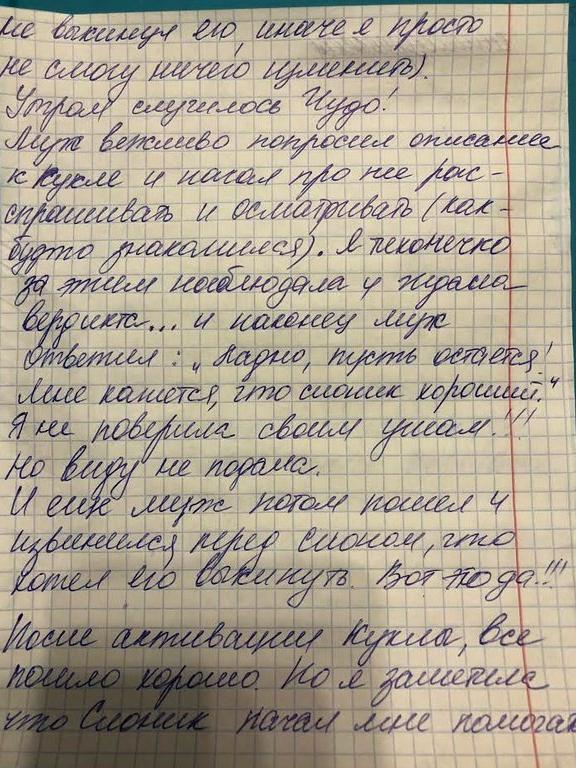 не выкинул его, иначе я просто
не смогу ничего изменить).
Утром случилось Чудо!
Муж вежливо попросил описание
к Кукле и начал про нее рас-
спрашивать и осматривать (как-
будто знакомился). Я тихонечко
за этим наблюдала и ждала
вердикта... и наконец муж
ответил: „Ладно, пусть остается!
Мне кажется, что слоник хороший."
Я не поверила своим ушам!!!
Но виду не подала.
И еще муж потом пошел и
извинился перед Слоном, что
хотел его выкинуть. Вот это да!!!
После активации Куклы, все
пошло хорошо. Но я заметила
что Слоник начал мне помогать